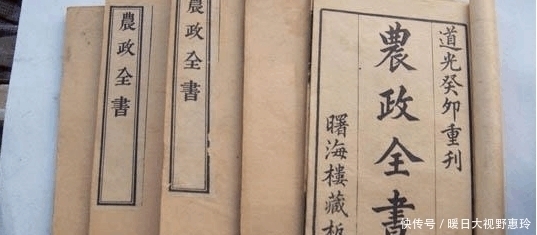 農政全書
農政全書
道光癸卯重刊
農政全書
曙海樓藏板
快传号 / 暖日大视野惠玲